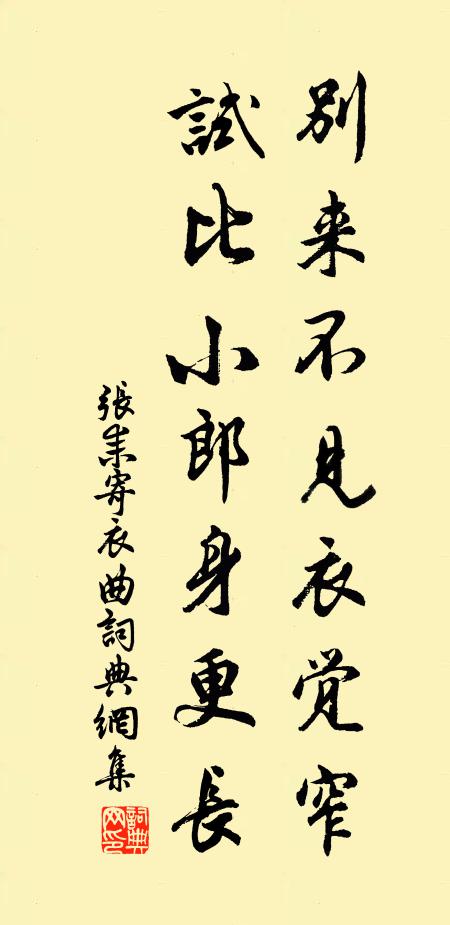 别来不見衣覚窄
試比小郎身更長
張耒寄衣曲詞典網集
詞典网印